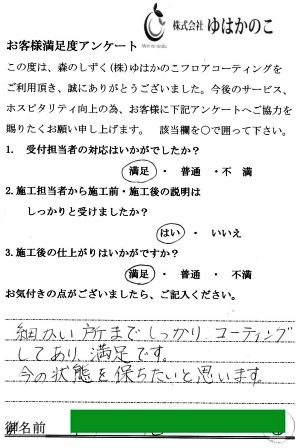 株式会社 ゆはかのこ
お客様満足度アンケート
この度は、森のしずく(株)ゆはかのこフロアコーティングを
ご利用頂き、誠にありがとうございました。今後のサービス、
ホスピタリティ向上の為、お客様に下記アンケートへご協力を
賜りたくお願い申し上げます。 該当欄を○で囲って下さい。
1. 受付担当者の対応はいかがでしたか?
満足 ・ 普通 ・不 満
2.施工担当者から施工前・施工後の説明は
しっかりと受けましたか?
はい ・ いいえ
3.施工後の仕上がりはいかがですか?
満足 ・ 普通 ・ 不満
お気付きの点がございましたら、ご記入ください。
細かい所までしっかり コーティング
してあり 満足です。
今の状態を保ちたいと思います。
御名前